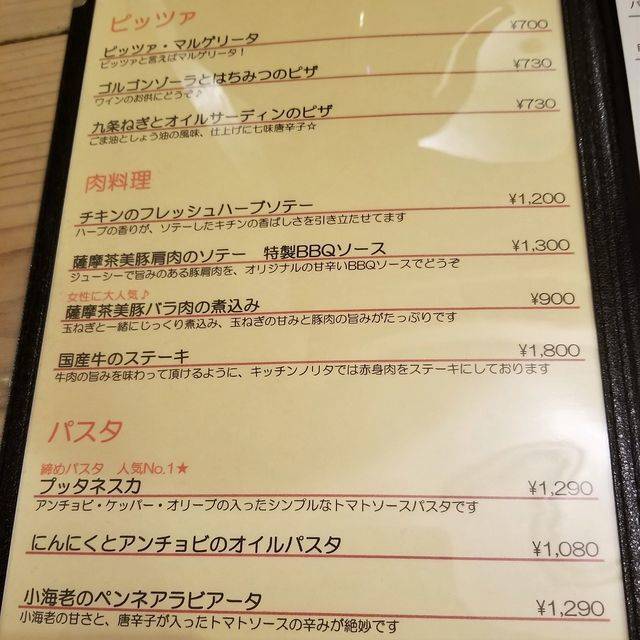 ピッツァ
ピッツァ・マルゲリータ ¥700
ピッツァと言えばマルゲリータ！
ゴルゴンゾーラとはちみつのピザ ¥730
ワインのお供にどうぞ♪
九条ねぎとオイルサーディンのピザ ¥730
ごま油としょう油の風味、仕上げに七味唐辛子☆
肉料理
チキンのフレッシュハーブソテー ¥1,200
ハーブの香りが、ソテーしたキチンの香ばしさを引き立たせてます
薩摩茶美豚肩肉のソテー　特製BBQソース ¥1,300
ジューシーで旨みのある豚肩肉を、オリジナルの甘辛いBBQソースでどうぞ
女性に大人気♪
薩摩茶美豚バラ肉の煮込み ¥900
玉ねぎと一緒にじっくり煮込み、玉ねぎの甘みと豚肉の旨みがたっぷりです
国産牛のステーキ ¥1,800
牛肉の旨みを味わって頂けるように、キッチンノリタでは赤身肉をステーキにしております
パスタ
締めパスタ　人気No.1★
プッタネスカ ¥1,290
アンチョビ・ケッパー・オリーブの入ったシンプルなトマトソースパスタです
にんにくとアンチョビのオイルパスタ ¥1,080
小海老のペンネアラビアータ ¥1,290
小海老の甘さと、唐辛子が入ったトマトソースの辛みが絶妙です